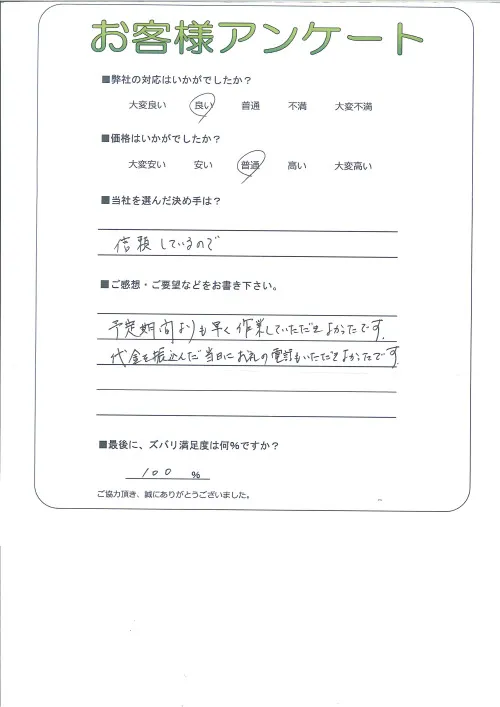 お客様アンケート
■弊社の対応はいかがでしたか？
大変良い 良い 普通 不満 大変不満
■価格はいかがでしたか？
大変安い 安い 普通 高い 大変高い
■当社を選んだ決め手は？
信頼しているので
■ご感想・ご要望などをお書き下さい。
予定期間よりも早く作業していただきよかったです.
代金を振込んだ当日にお礼の電話もいただきよかったです.
■最後に、ズバリ満足度は何%ですか？
100 %
ご協力頂き、誠にありがとうございました。